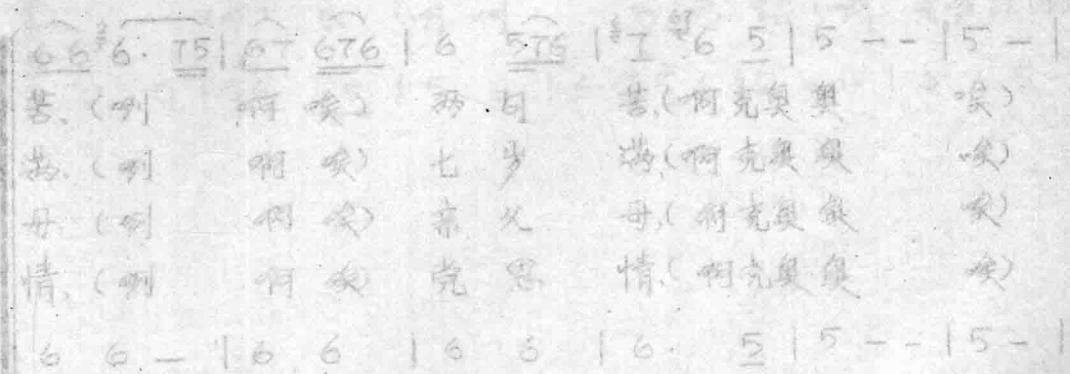 6 6 6· 7 5 | 6 7 6 7 6 | 6 5 7 6 | 7 6 5 | 5 - - | 5 - |
苦、(咧 啊 唉) 两句 苦、(啊克奥奥 唉)
满、(咧 啊 唉) 七岁 满、(啊克奥奥 唉)
母、(咧 啊 唉) 亲父 母、(啊克奥奥 唉)
情、(咧 啊 唉) 党恩 情、(啊克奥奥 唉)
6 6 - | 6 6 | 6 6 | 6· 5 | 5 - - | 5 - |